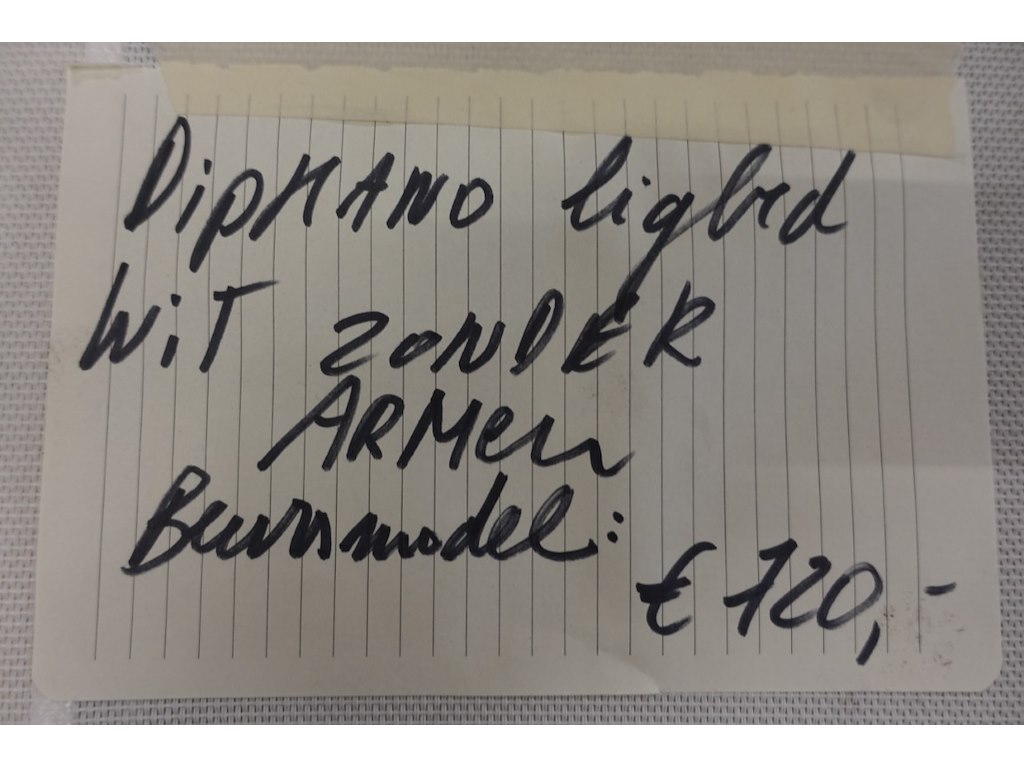 DipHANO ligbed
WiT ZONDER
ARMen
Beursmodel:
€ 720,-